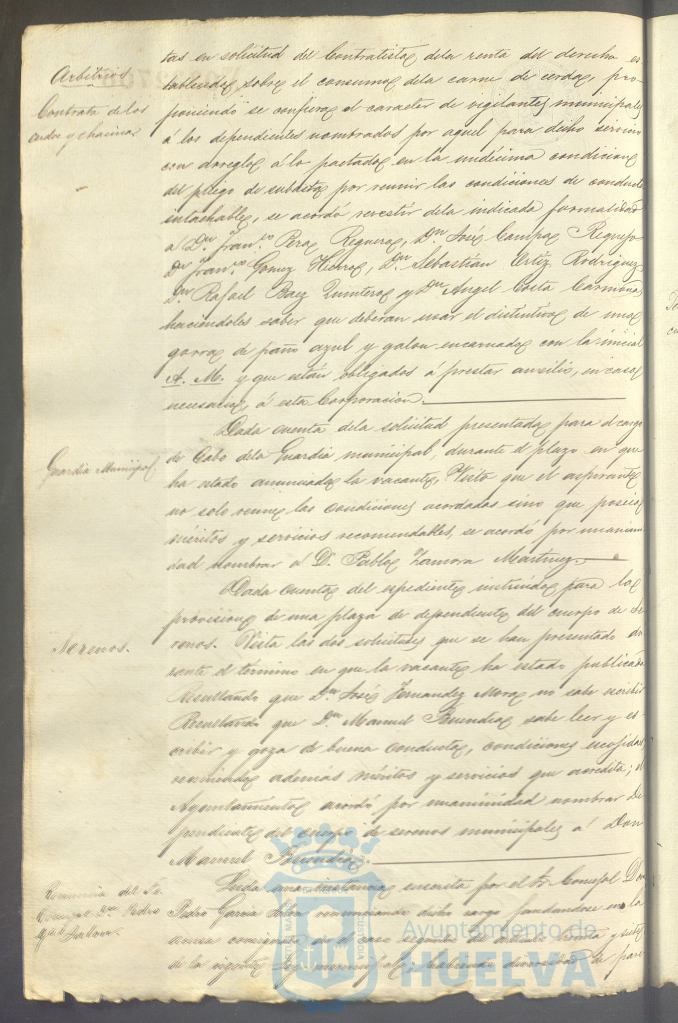 Arbitrios
Contrata de los
cerdos y chacinas
tas en solicitud del Contratista dela renta del derecho es
tablecido sobre el consumo dela carne de cerdo, pro-
poniendo se confiera el caracter de vigilantes municipales
á los dependientes nombrados por aquel para dicho servicio
con arreglo á lo pactado en la undécima condicion
del pliego de subasta por reunir las condiciones de conducta
intachable, se acordó revestir dela indicada formalidad
á Dn. Franco. Pera Reguera, Dn. José Campa Requejo
Dn. Franco. Gomez, Dn. Sebastián Ortiz Rodriguez
Dn. Rafael Baez Quintero y Dn. Angel Costa Carmona
haciendoles saber que deberan usar el distintivo de una
gorra de paño azul y galon encarnado con la inicial
A. M. y que están obligados á prestar auxilio, en caso
necesario, á esta Corporación.
Guardia Municipal
Dada cuenta dela solicitud presentada para el cargo
de Cabo dela Guardia municipal, durante el plazo en que
ha estado anunciada la vacante. Visto que el aspirante
no solo reune las condiciones acordadas sino que posee
méritos y servicios recomendables, se acordó por unanimi
dad nombrar á D. Pablo Zamora Martinez.
Serenos.
Dada cuenta del espediente instruido para la
provision de una plaza de dependiente del cuerpo de se
renos. Vista las dos solicitudes que se han presentado du
rante el termino en que la vacante ha estado publicada
Resultando que Dn. José Fernandez Mora no sabe escribir
Resultando que Dn. Manuel Buendia sabe leer y es-
cribir y goza de buena conducta, condiciones exigidas
reuniendo además méritos y servicios que acredita; el
Ayuntamiento acordó por unanimidad nombrar De
pendiente del cuerpo de serenos municipales á Don
Manuel Buendia.
Renuncia del Sr.
Concejal Dn. Pedro
Leida una instancia suscrita por el Sr. Concejal Don
Pedro Garcia renunciando dicho cargo fundandose en la
causa consignada en el caso segundo del articulo y siete
de la vigente Ley municipal; habiendo
Ayuntamiento de
HUELVA